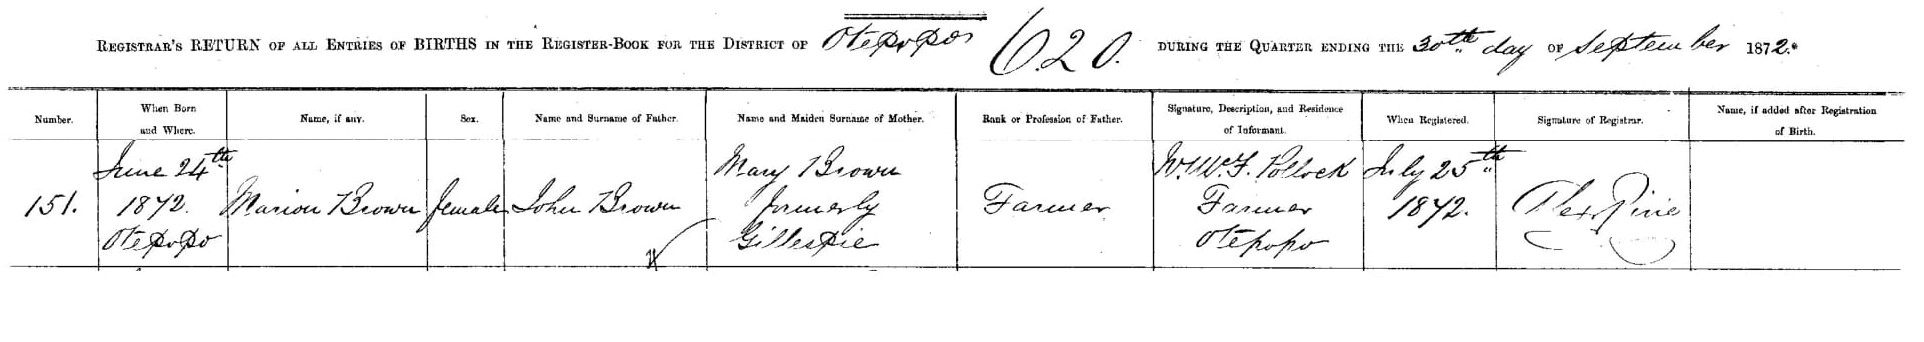 REGISTRAR'S RETURN OF ALL ENTRIES OF BIRTHS IN THE REGISTER-BOOK FOR THE DISTRICT OF Otepopo 620. DURING THE QUARTER ENDING THE 30th day OF September 1872.
Number.
When Born
and Where.
Name, if any.
Sex.
Name and Surname of Father.
Name and Maiden Surname of Mother.
Rank or Profession of Father.
Signature, Description, and Residence
of Informant.
When Registered.
Signature of Registrar.
Name, if added after Registration
of Birth.
151.
June 24th
1872.
Otepopo
Marion Brown
female
John Brown
Mary Brown
formerly
Gillespie
Farmer
W.W.F. Pollock
Farmer
Otepopo
July 25th
1872.
Alex Pirie